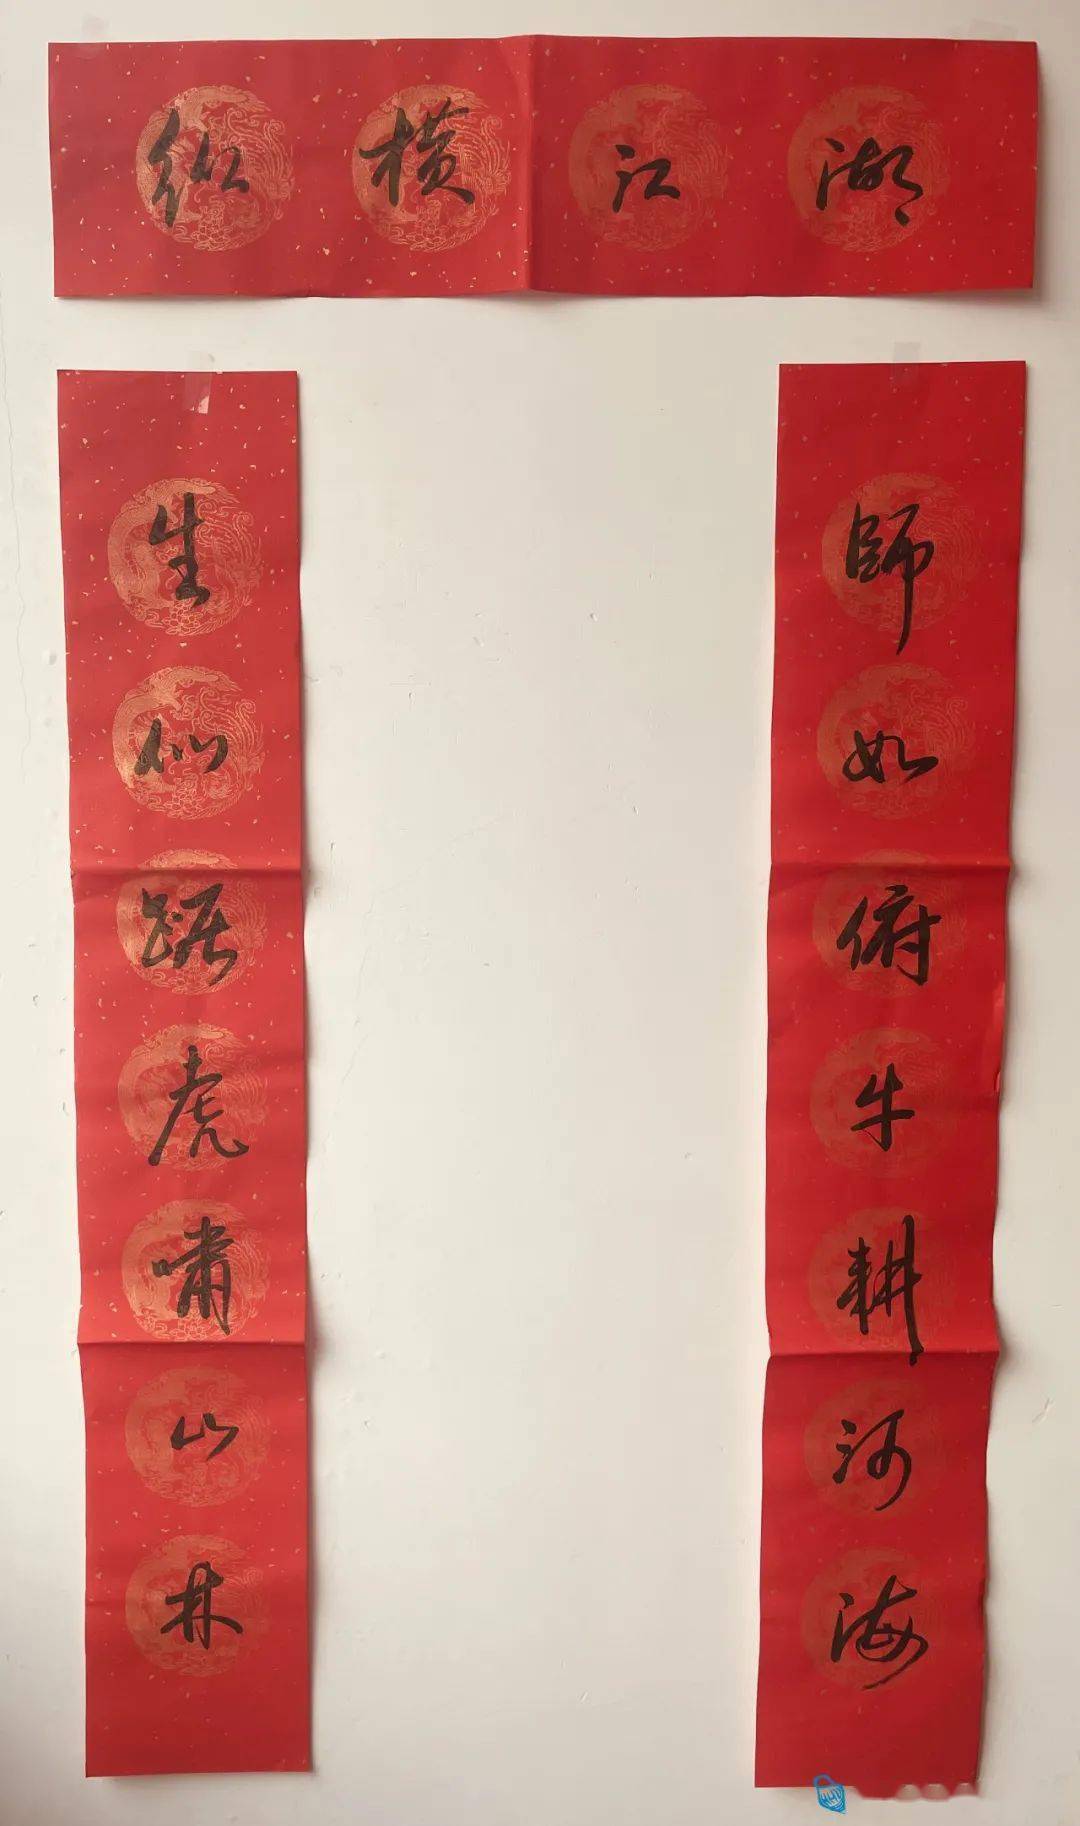 纵横江湖
師如俯牛耕河海
生似踞虎啸山林